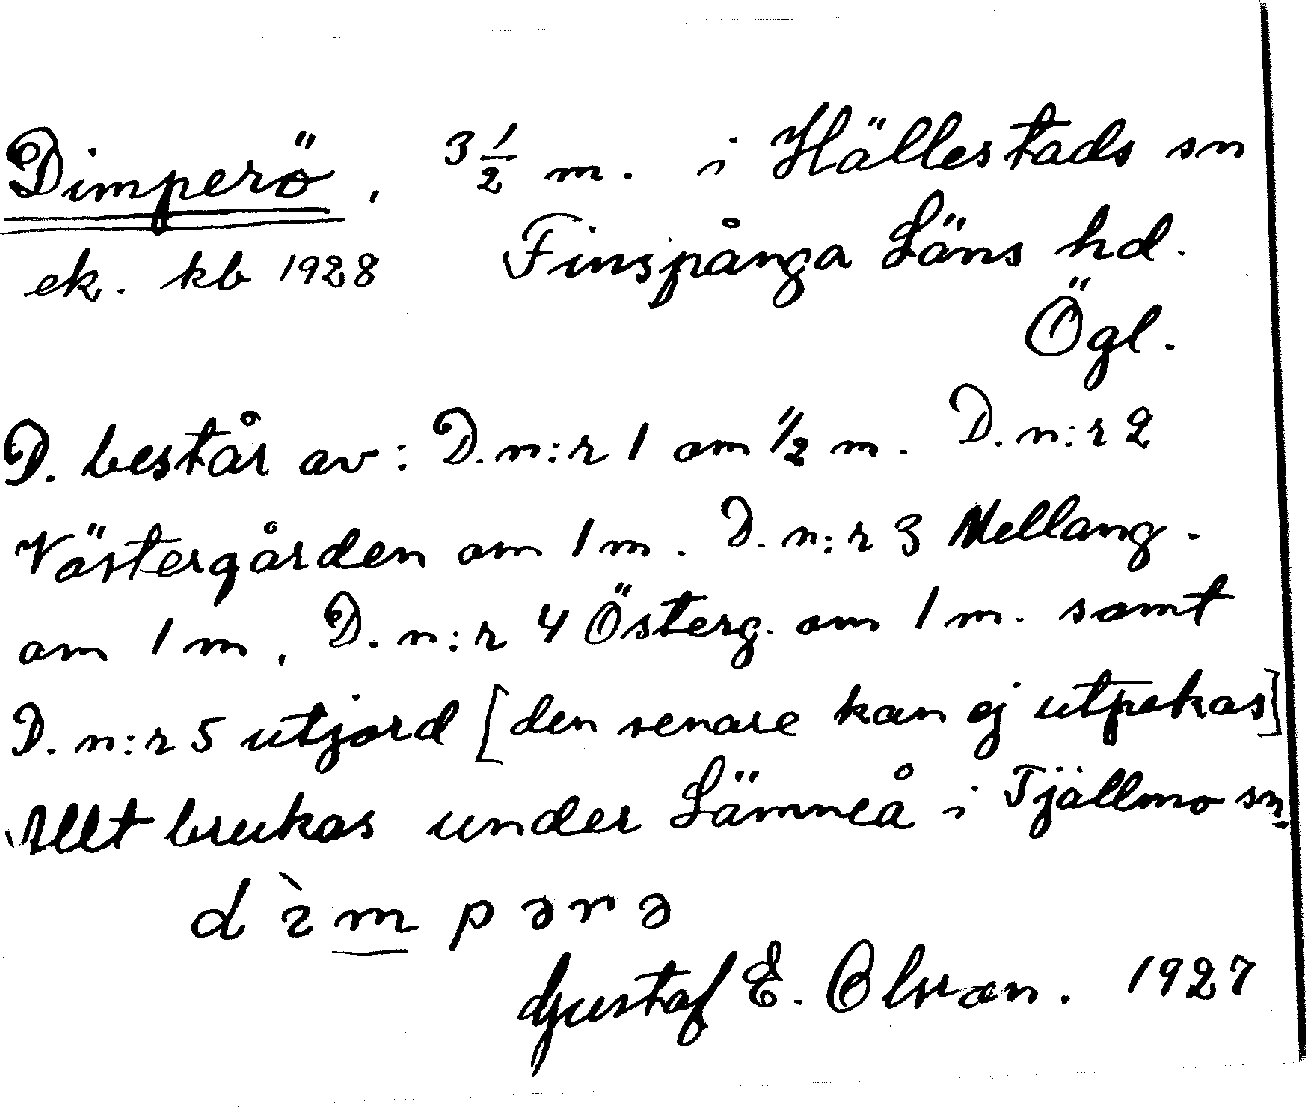 Dimperö, 3 1/2 m. i Hällestads sn
ek. kb 1928 Finspånga Läns hd.
Ögl.
D. består av: D. n:r 1 om 1/2 m. D. n:r 2
Västergården om 1 m. D. n:r 3 Mellang.
om 1 m, D. n:r 4 Österg. om 1 m. samt
D. n:r 5 utjord [den senare kan ej utpekas]
Allt brukas under Lämneå i Tjällmo sn.
d ὶ m p ə r ə
Gustaf E. Olsson. 1927